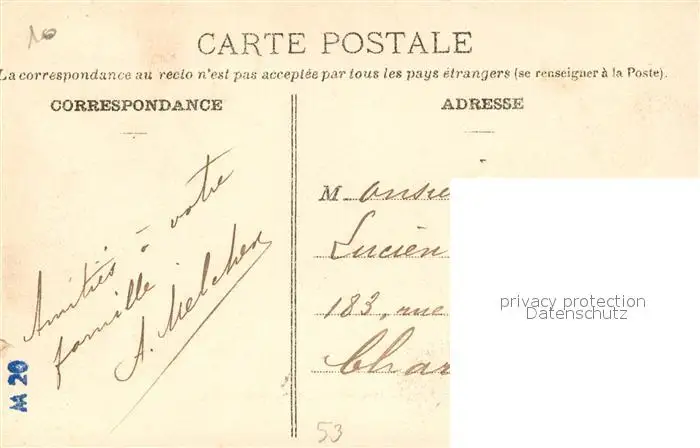 10
CARTE POSTALE
La correspondance au recto n'est pas acceptée par tous les pays étrangers (se renseigner à la Poste).
CORRESPONDANCE
Amitiés à votre
famille
A. Melcher
M 20
ADRESSE
M onsie
Lucien
183, rue
Char
53
privacy protection
Datenschutz